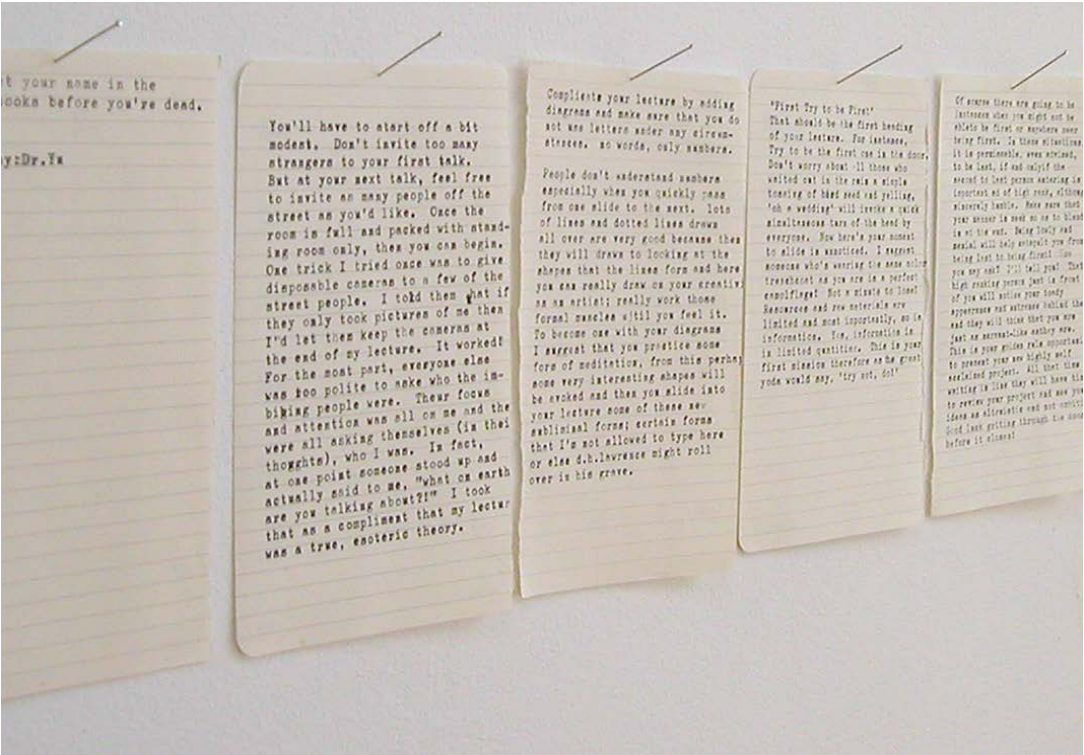 t your name in the
ooks before you're dead.
y:Dr.Yu
You'll have to start off a bit
modest. Don't invite too many
strangers to your first talk.
But at your next talk, feel free
to invite as many people off the
street as you'd like. Once the
room is full and packed with stand-
ing room only, then you can begin.
One trick I tried once was to give
disposable cameras to a few of the
street people. I told them that if
they only took pictures of me then
I'd let them keep the cameras at
the end of my lecture. It worked!
For the most part, everyone else
was too polite to aske who the im-
biking people were. Theur focus
and attention was all on me and the
were all asking themselves (in thei
thoghts), who I was. In fact,
at one point someone stood up and
actually said to me, "what on earth
are you talking about?!" I took
that as a compliment that my lectur
was a true, esoteric theory.
Complicate your lecture by adding
diagrams and make sure that you do
not use letters under any circum-
stances. no words, only numbers.
People don't understand numbers
especially when you quickly pass
from one slide to the next. lots
of lines and dotted lines drawn
all over are very good because then
they will drawn to looking at the
shapes that the lines form and here
you can really draw on your creativi
as an artist; really work those
formal muscles until you feel it.
To become one with your diagrams
I suggest that you practice some
form of meditation, from this perhap
some very interesting shapes will
be evoked and then you slide into
your lecture some of these new
subliminal forms; certain forms
that I'm not allowed to type here
or else d.h.lawrence might roll
over in his grave.
'First Try to be First'
That should be the first heading
of your lecture. For instance,
Try to be the first one in the door.
Don't worry about all those who
waited out in the rain a simple
tossing of bird seed and yelling,
'oh a wedding' will invoke a quick
simultaneous turn of the head by
everyone. Now here's your moment
to slide in unnoticed. I suggest
someone who's wearing the same color
trenchcoat as you are is a perfect
camoflage! Not a minute to lose!
Resources and raw materials are
limited and most importantly, so is
information. Yes, information is
in limited quantities. This is your
first mission therefore as the great
yoda would say, 'try not, do!'
Of course there are going to be
instances when you might not be
able to be first or anywhere near
being first. In these situations
it is permissable, even advised,
to be last, if and only if the
second to last person
important and of high rank, although
sincerely humble. Make sure that
your manner is meek so as to blend
in at the end. Being lowly and
menial will help catapult you from
being last to being first!
you may ask? I'll tell you! That
high ranking person just in front
of you will notice your
appearance and
and they will think that you are
just as servant-like as they are.
This is your golden opportuni
to present your new highly self
project. All that time
waiting in line they will have tim
to review your project and see your
ideas as altruistic and not ambiti
Good luck getting through the door
before it closes!